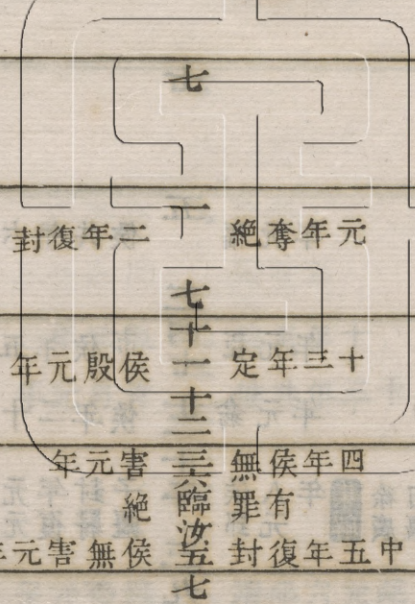 七
一
元年奪絕 二年復封
七
十
十三年定 一 侯殷元年
十
二
四年侯無 三 害元年
六
有 罪 臨 絕
汝
中五年復封 五 侯無害元年
七